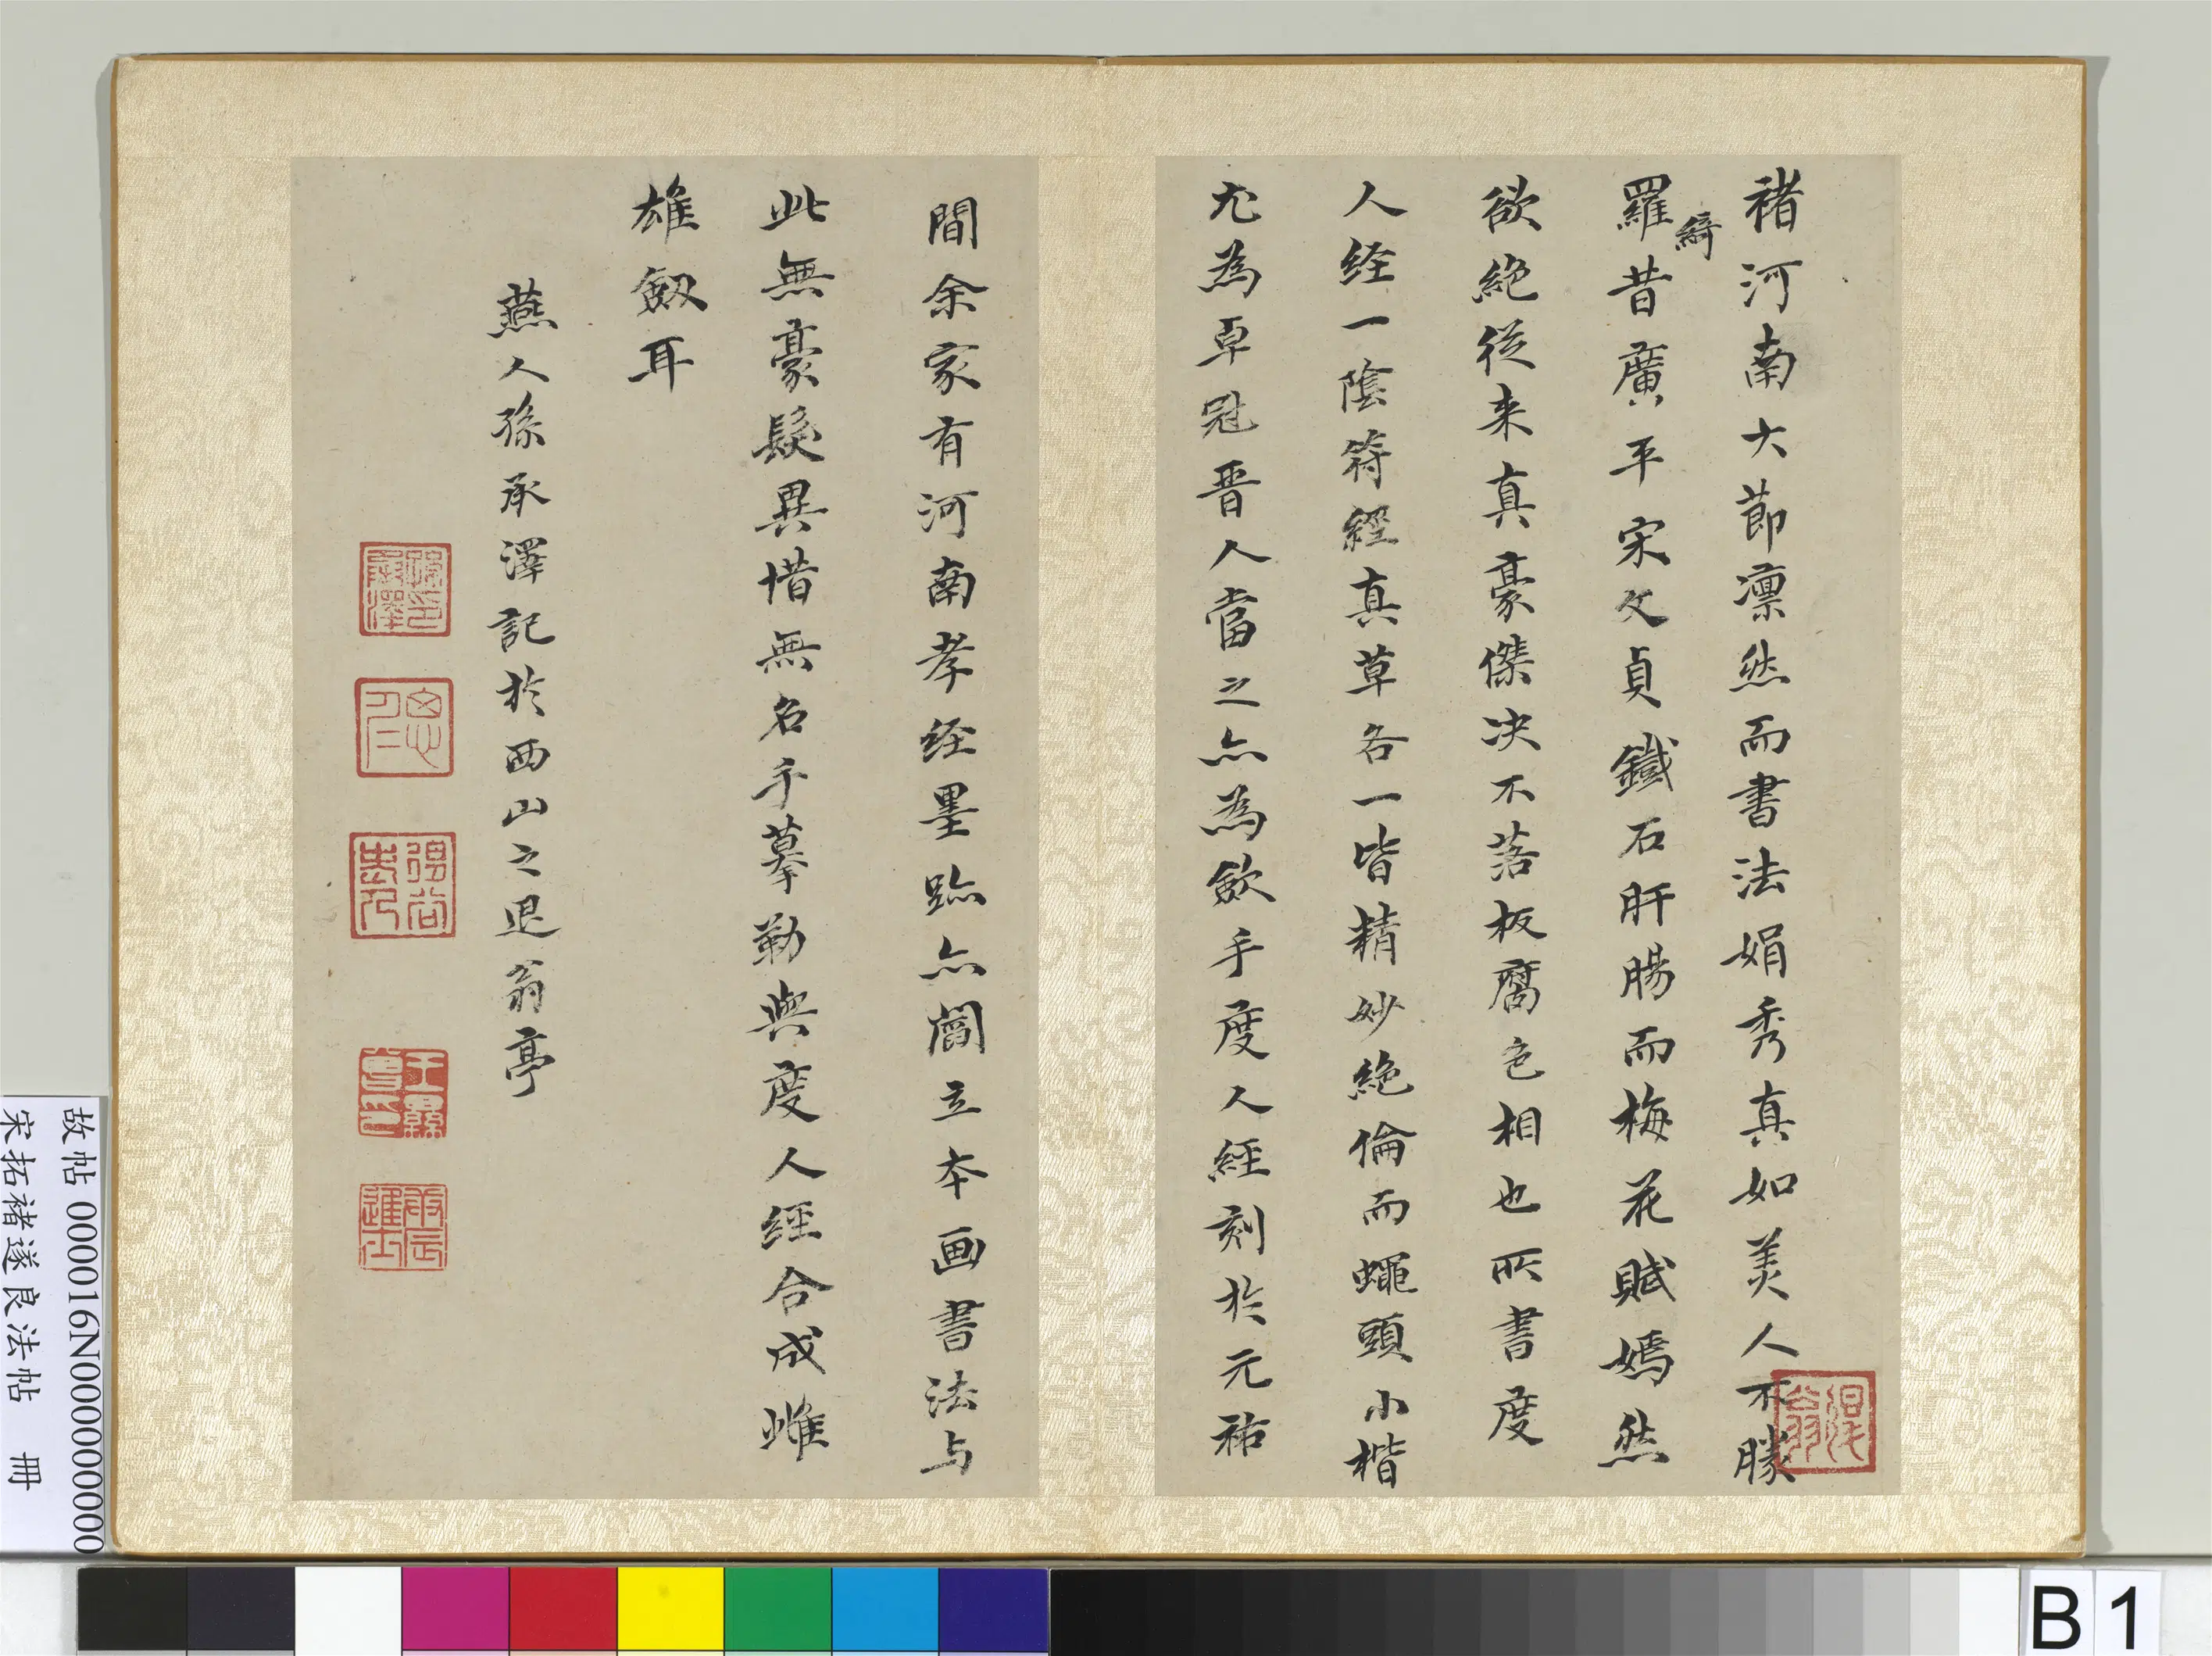 褚河南大節凛然而書法娟秀真如美人不勝
羅綺昔廣平宋文貞鐵石肝腸而梅花賦嫣然
欲絕從来真豪傑决不落板腐色相也所書度
人经一陰符經真草各一皆精妙絶倫而蠅頭小楷
尤為卓冠晋人當之亦為歛手度人經刻於元祐
間余家有河南孝经墨跡亦閻立本画書法与
此無豪髮異惜無名手摹勒與度人經合成雌
雄劔耳
燕人孫承澤記於西山之退翁亭
退翁
孫承澤印
故帖 000016N000000000
宋拓褚遂良法帖 冊
B 1